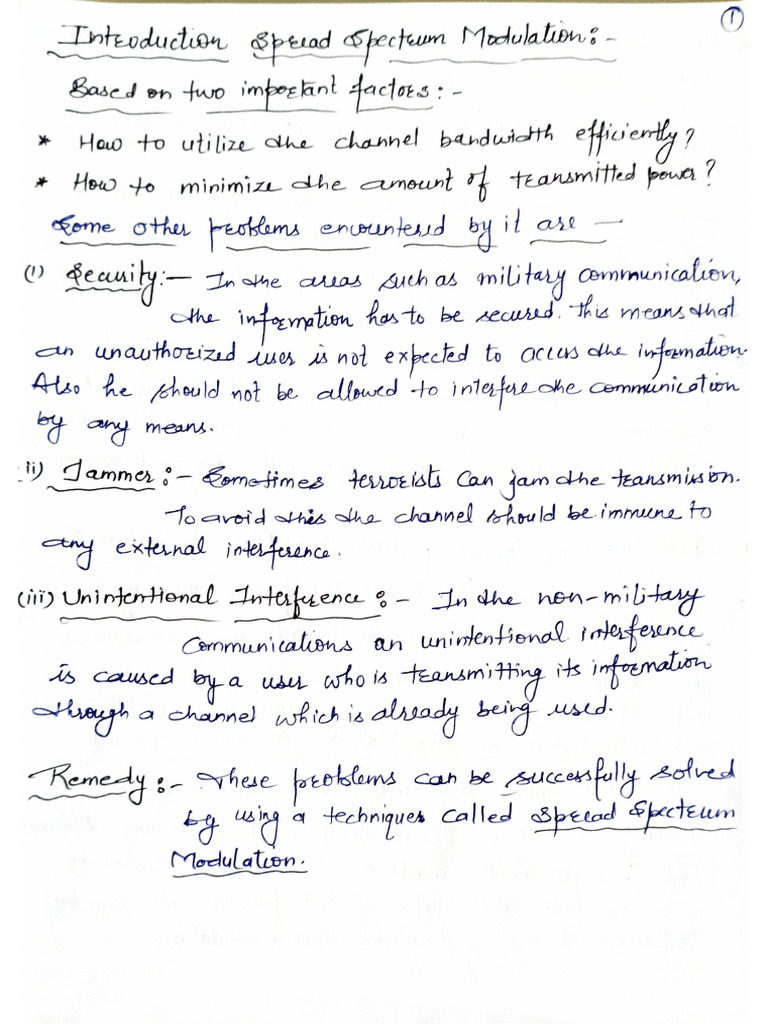 1
Introduction Spread Spectrum Modulation:-
Based on two important factors:-
* How to utilize the channel bandwidth efficiently?
* How to minimize the amount of transmitted power?
Some other problems encountered by it are —
(i) Security:- In the areas such as military communication,
the information has to be secured. This means that
an unauthorized user is not expected to access the information.
Also he should not be allowed to interfere the communication
by any means.
ii) Jammer:- Sometimes terrorists can jam the transmission.
To avoid this the channel should be immune to
any external interference.
(iii) Unintentional Interference:- In the non-military
Communications an unintentional interference
is caused by a user who is transmitting its information
through a channel which is already being used.
Remedy:- These problems can be successfully solved
by using a techniques called Spread Spectrum
Modulation.